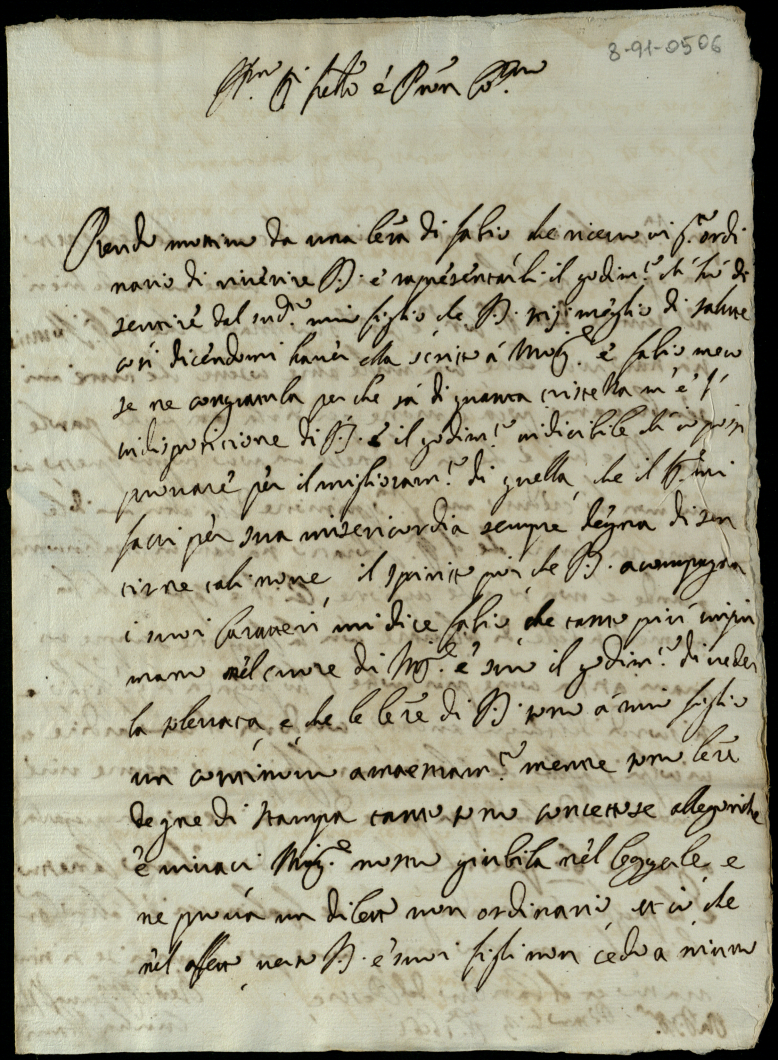 8-91-0506
Ill.mo Sig. fratello é Pròn Col.mo
Prendo motivo da una lèra di fabio che riceuo in q.to ordi
nario di riuerire V.S. e rapresentarli il godim.to ch'hò di
sentire dal sud.to mio figlio che V.S. stij meglio di salute
così dicendomi hauer ella scritto á Mog.e e fabio meco
se ne congratula per che sá di quanta tristezza m'è l'
indisposicione di V.S. e il godim.to indicibile ch'io possi
prouare pèr il miglioram.to di quella, che il Sig.re mi
facci pèr sua misericordia sempre dègna di sen
tirne tali noue, il spirito poi che V.S. acompagna
i suoi Caratteri mi dice fabio che tanto più inpri
mano nèl cuore di Mog.e e suo il godim.to di ueder
la solleuata, e che le lère di V.S. sono á mio figlio
un continuo amaestram.to mentre sono lère
degne di stampa tanto sono concettose allegoriche
è uiuaci Mog.e nostra giubila nèl leggerle e
nè proua un diletto non ordinario, et io che
nèl affetto uerso V.S. e suoi figli non cèdo a niuno